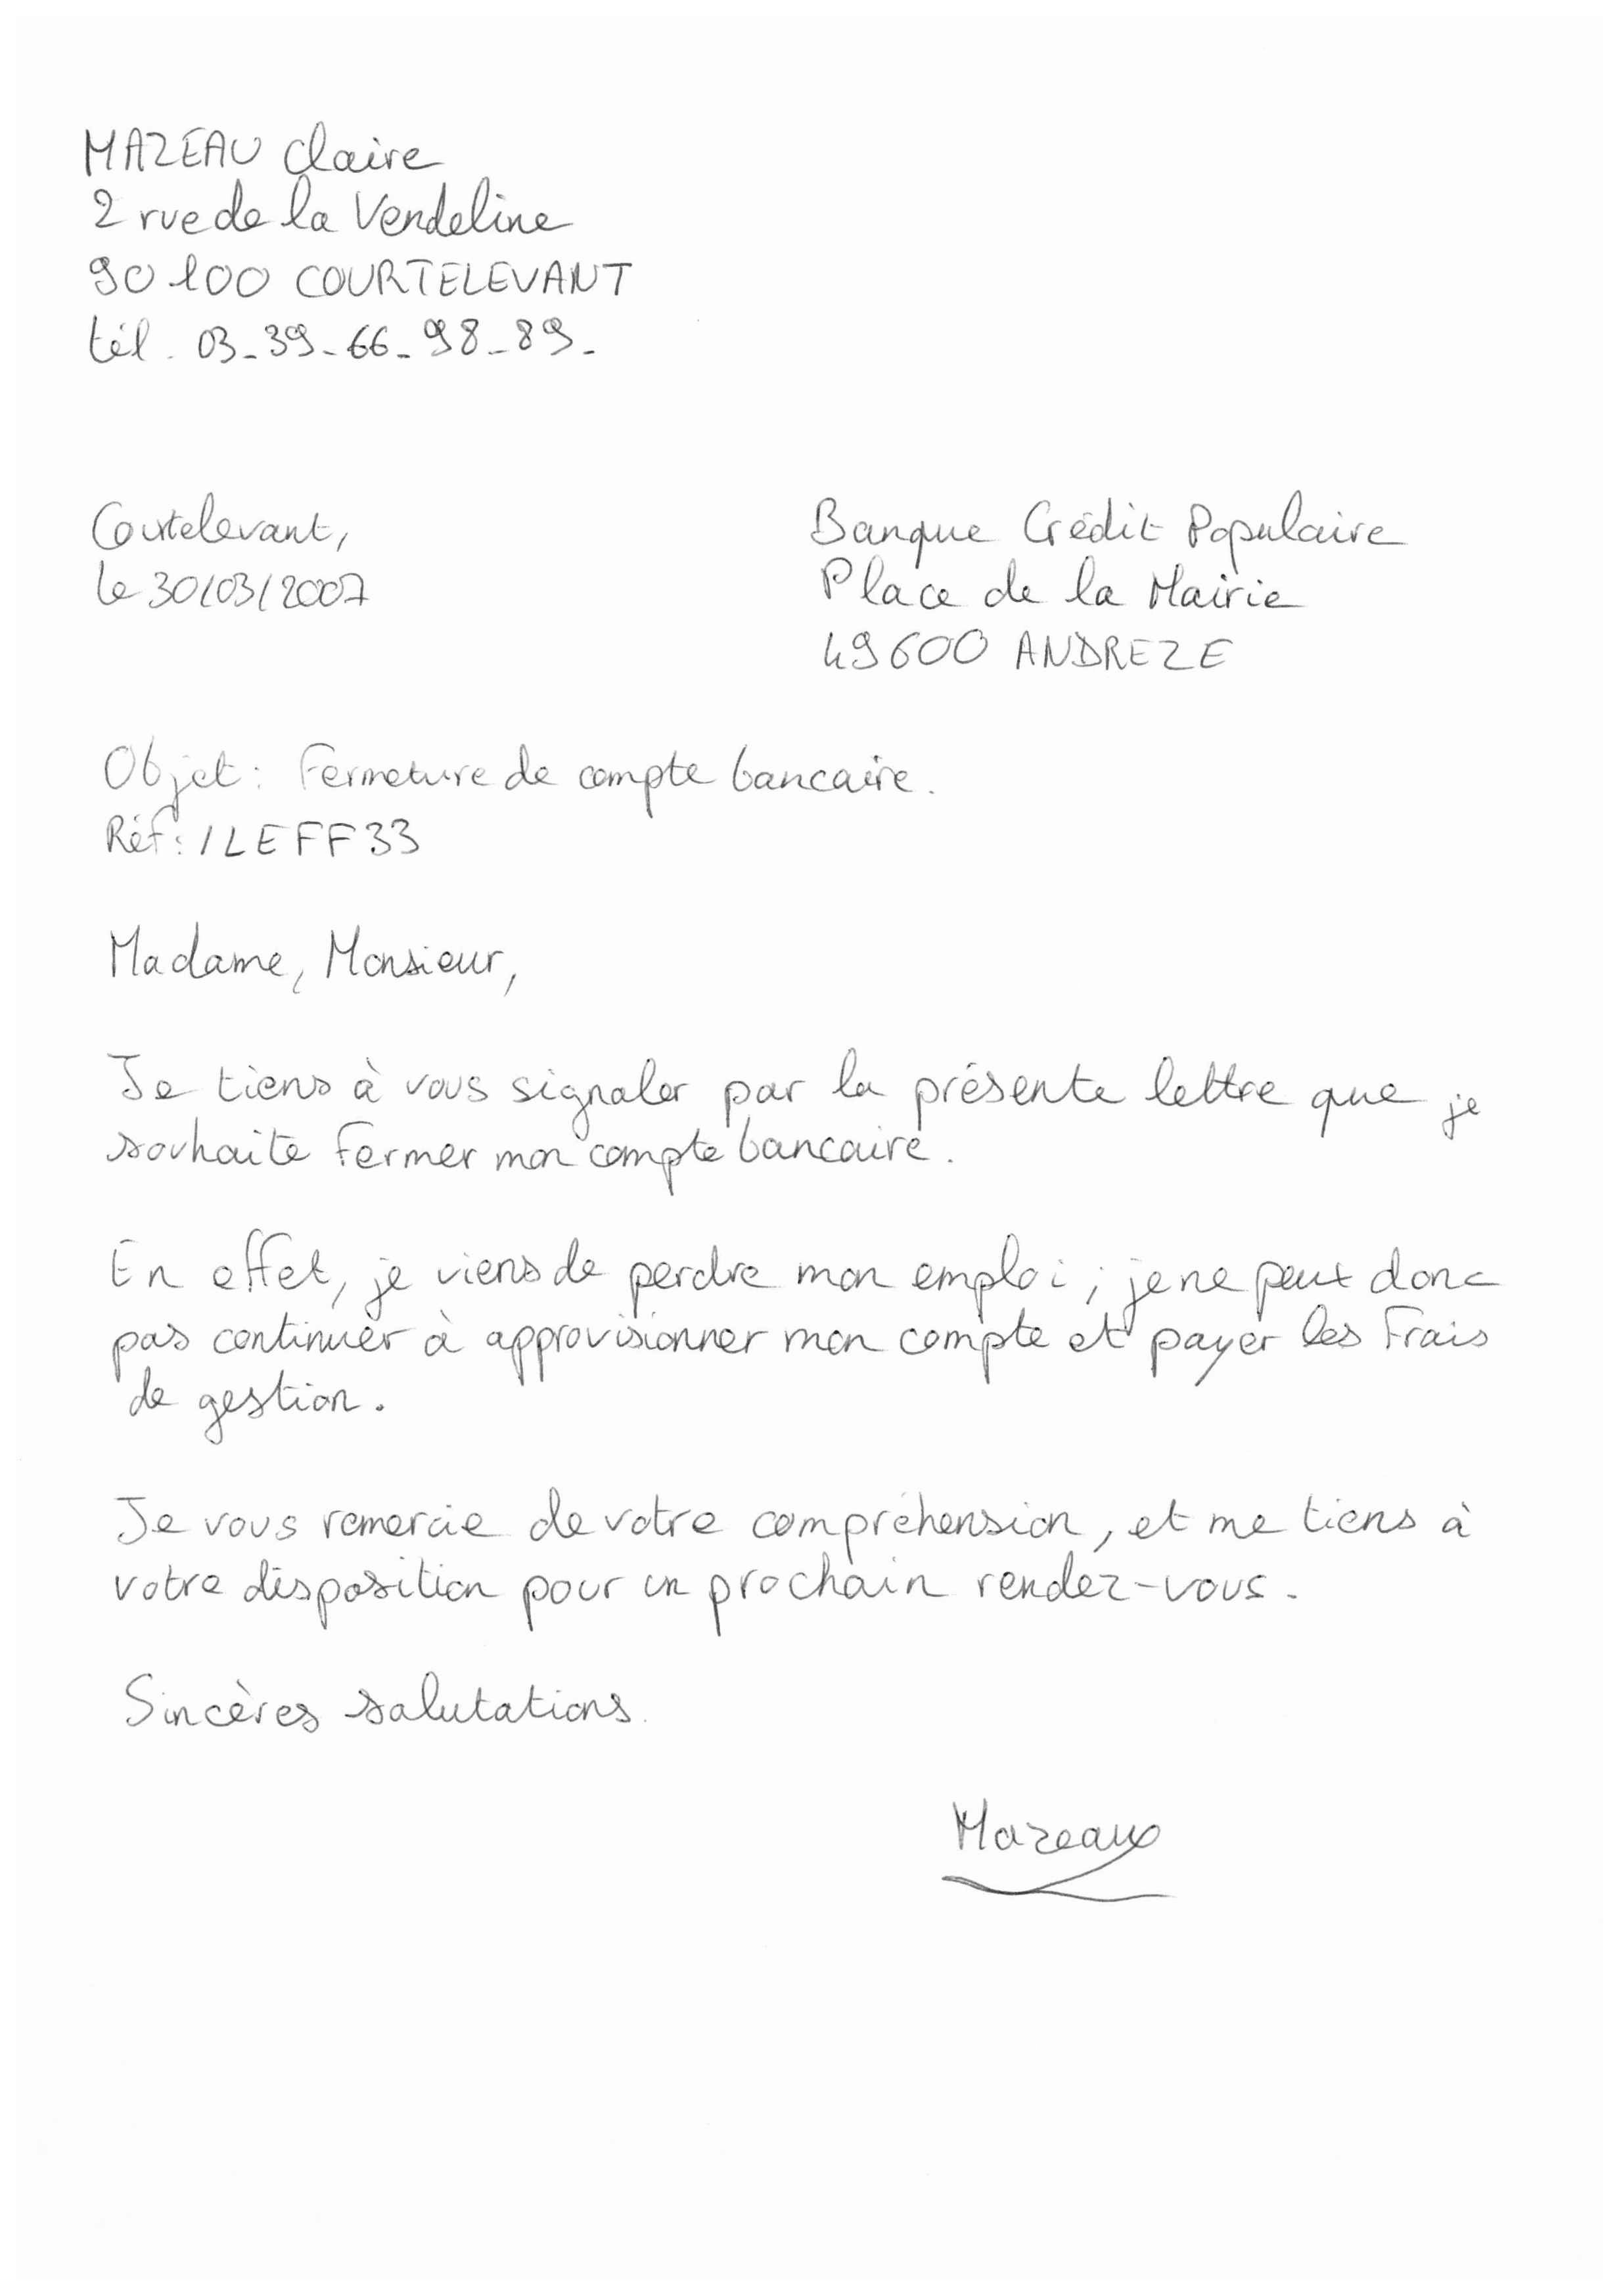 MAZEAU Claire
2 rue de la Vendeline
90 100 COURTELEVANT
tél. 03-39-66-98-89-
Courtelevant,
le 30/03/2007
Banque Crédit Populaire
Place de la Mairie
49600 ANDREZE
Objet : Fermeture de compte bancaire.
Réf : ILEFF33
Madame, Monsieur,
Je tiens à vous signaler par la présente lettre que je
souhaite fermer mon compte bancaire.
En effet, je viens de perdre mon emploi ; je ne peux donc
pas continuer à approvisionner mon compte et payer les frais
de gestion.
Je vous remercie de votre compréhension, et me tiens à
votre disposition pour un prochain rendez-vous.
Sincères salutations.
Mazeau